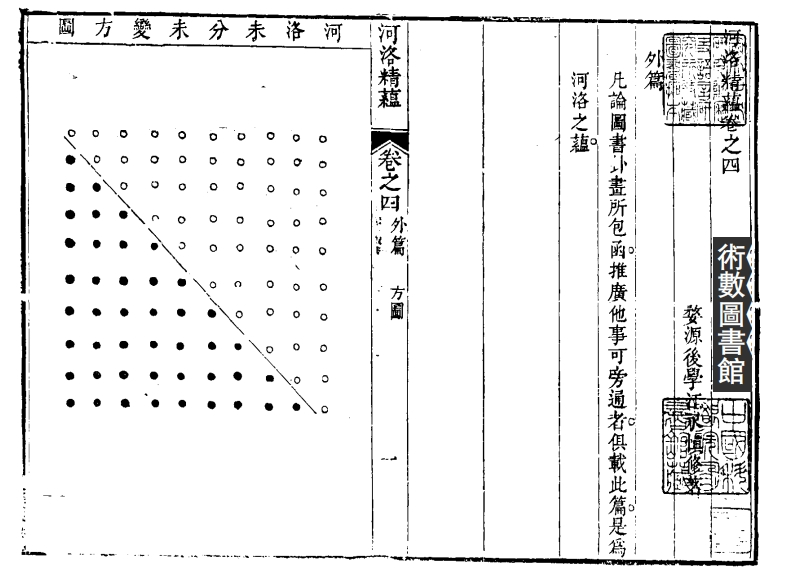 河洛精蘊卷之四
婺源後學江永慎修著
外篇
凡論圖書卦畫所包函推廣他事可旁通者俱載此篇是爲
河洛之蘊
河洛精蘊
卷之四
外篇
方圖
一
河洛未分未變方圖
術數圖書館